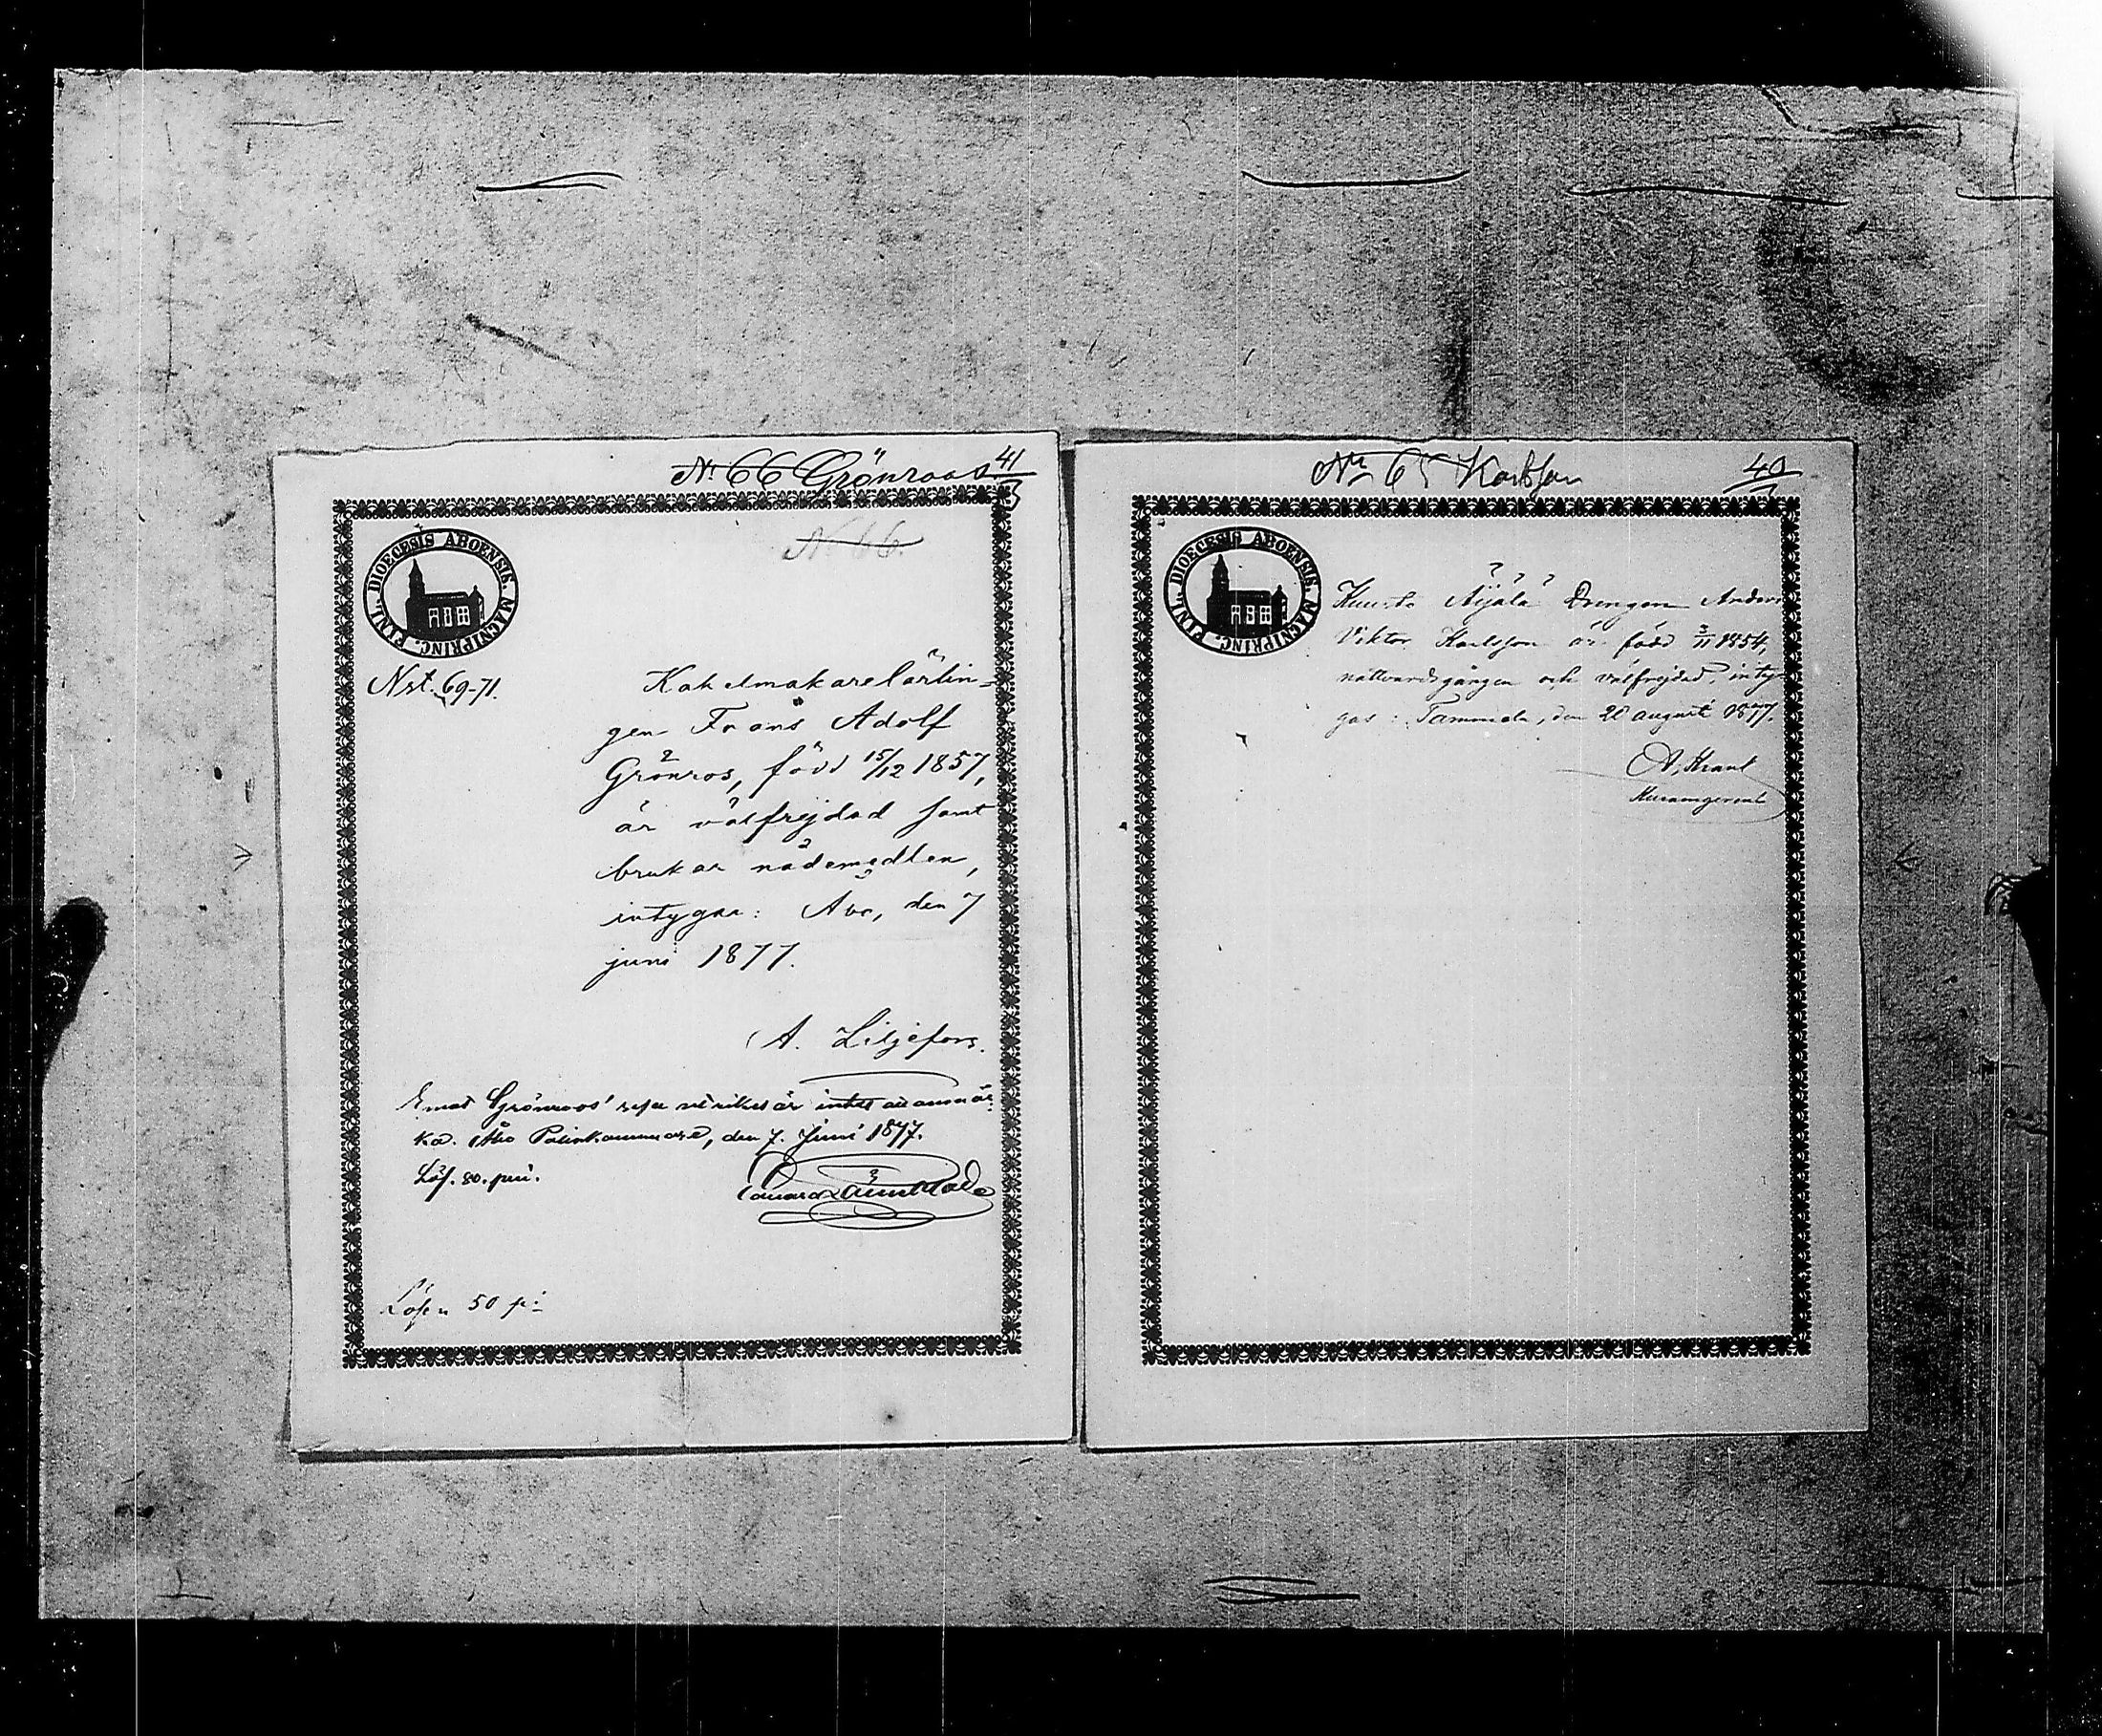 No 66 Grönroos 41/3
No 66.
DIOECESIS ABOENSIS. MAGNIPRINC. FINL.
Nst. 69-71.
Kakelmakarelärlin-
gen Frans Adolf
Grönros, född 15/12 1857,
är välfrejdad samt
brukar nådemedlen,
intygar: Åbo, den 7
juni 1877.
A. Liljefors.
Emot Grönroos' resa utrikes är intet att anmär-
ka. Åbo Poliskammare, den 7. Juni 1877.
Lös. 80. pni.
Lösen 50 pi
No 65 Karlsson 40/3
DIOECESIS ABOENSIS. MAGNIPRINC. FINL.
Äijälä Drengen Anders
Viktor Karlsson är född 3/11 1854,
nattvardsgången och välfrejdad, inty-
gas: Tammela, den 20 augusti 1877.